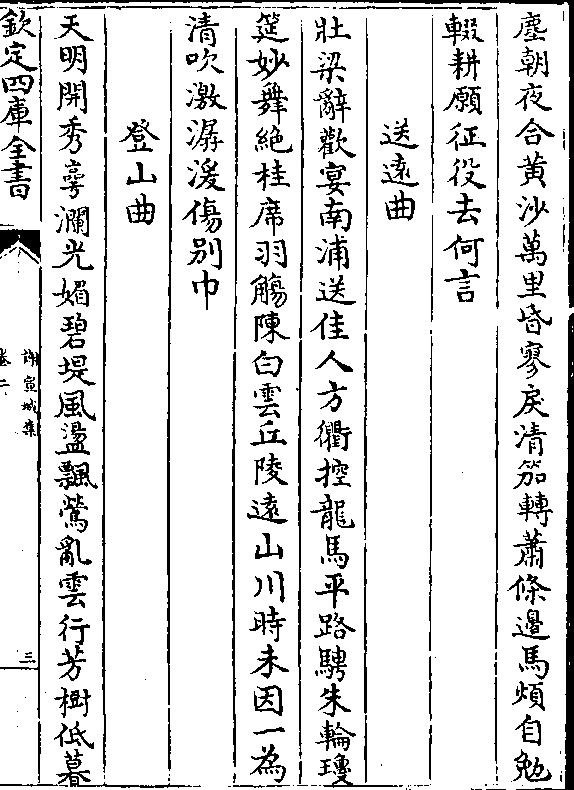 塵朝夜合黃沙萬里昏寥戾清笳轉蕭條邊馬煩自勉
輟耕願征役去何言
送遠曲
壯梁辭歡宴南浦送佳人方衢控龍馬平路騁朱輪瓊
筵妙舞絕桂席羽觴陳白雲丘陵遠山川時未因一為
清吹激潺湲傷別巾
登山曲
天明開秀崿瀾光媚碧堤風盪飄鶯亂雲行芳樹低暮
欽定四庫全書
謝宣城集
卷二
三